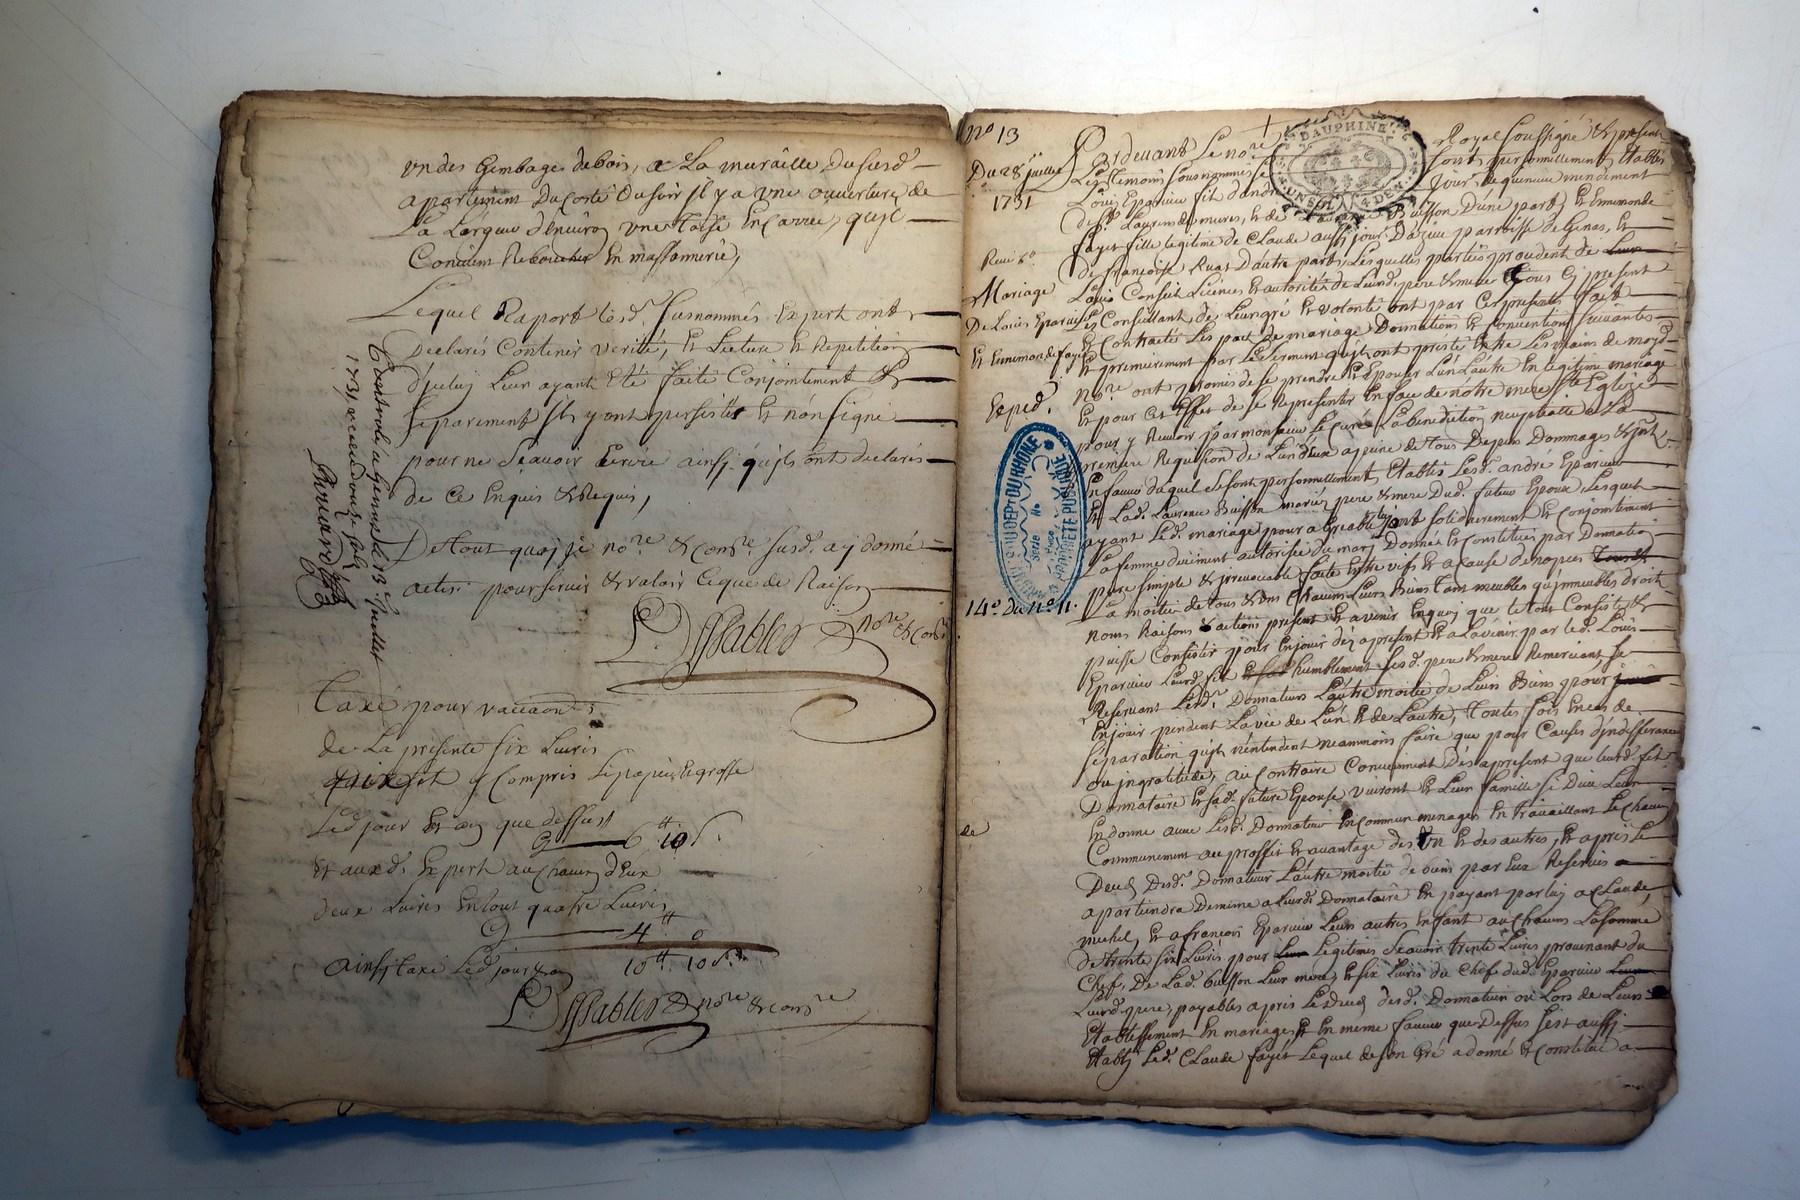 un des Gembages debois, & La muraille Dususd.
apartement Du Coste Dusoir il y a une ouverture de
La Largeur d'Environ une toise En Carré, quil
Convient Reboucher En massonnerie,
Lequel Raport lesd. susnommés Expert ont
Declarés Contenir verité, Et Lecture Et Repetition
d'iceluy Leur ayant Eté faite Conjointement &
separement ils y ont persisté Et non signé
pour ne sçavoir Ecrire ainsy quils ont declarés
de Ce Enquis & Requis,
De tout quoy je no.re & Com.re susd. ay donné
acte pour servir & valoir Ceque de Raison
no.re & Com.re
Controlé a Genas le 13 Juillet
1731 reçeu douze sols
Taxé pour vacaon
de La presente six Livres
dix sols y Compris Lepapier, Et grosse
Led. jour Et an que dessus
6tt 10s.
Et auxd. Expert au Chacun d'Eux
deux Livres En tout quatre Livres
4tt 0
ainsy taxé Led. jour & an 10tt. 10s.
no.re & com.re
No 13
Du 28 juillet
1731
Mariage
De Louis Eparvier
Et Ennimonde fayet
Exped.
14e. Du No 11.
de
DAUPHINÉ
UN SOL 4 DEN
Pardevant Le no.re Royal soussigné & present
Les Temoins sousnommés sont personnellement Etablis
Louis Eparvier fils d'André
de Laurence Buisson D'une part, Et Ennimonde
fayet fille legitime de Claude aussy D'azieu parroisse de Genas, Et
de françoise Ruat D'autre part, Lesquelles parties procedent de
Lavis Conseil Licences & autorités de Leursd. pere & mere Tous Cy present
Les Conseillant, de Leur gré Et volonté ont par Ces presentes fait
Et Contractés Les pact de mariage, Donnations Et Conventions suivantes
Et premierement par Led. serment quils ont presté Entre Les mains de moyd.
No.re ont promis de se prendre Et Epouser L'un L'autre En legitime mariage
Et pour Cet Effet de se Representer En face de notre mere Ste Eglise
pour y Recevoir par monsieur le Curé La benediction nuptialle a La
premiere Requisition de L'un d'Eux a peine de tous Depens Dommages & jnt.
En faveur duquel se sont personnellement Etablis Lesd. andré Eparvier
Et Lad. Laurence Buisson mariés pere & mere Dud. futeur Epoux, Lesquels
ayant Led. mariage pour agreable ont solidairement Et Conjointement
La femme duëment autorisée du mary Donnée Et Constitués par Donnation
pure simple & jrrevocable faite Entre vifs Et a Cause de nopces
La moitié de tous Et Uns Chacuns Leurs Biens tant meubles qu'jmmeubles droit
noms Raisons & actions present Et avenir En quoy que le tout Consiste &
puisse Consister pour En jouir dès a present Et a L'avenir par led. Louis
Eparvier Leurd. fils humblement sesd. pere & mere Remerciant, se
Reservant Lesd. Donnateurs L'autre moitié de Leurs Biens pour
En jouir pendant La vie de L'un Et de L'autre, Toutes fois En cas de
separation quils n'entendent neammoins faire que pour Causes d'indifferance
ou jngratitude, au Contraire Conviennent Dès a present que leurd. fils
Donnataire Et sad. future Epouse vivront Et Leur famille si Dieu Leur
En donne avec Lesd. Donnateur En Commun menages En travaillant Le Chacun
Communement au proffit Et avantage des Un Et des autres, Et après Le
Deceds Desd. Donnateurs L'autre moitié de biens par Eux Reservés
apartiendra De mème a Leurd. Donnataire En payant par luy a Claude,
michel, Et a françois Eparvier Leurs autres Enfant au Chacuns La somme
De trente six Livres pour Legitimes sçavoir trente Livres provenant du
Chef De Lad. Buisson Leur mere, Et six Livres du Chef dud. Eparvier
Leurd. pere, payables après Le Deceds desd. Donnateurs ou Lors de Leurs
Etablissement En mariages Et En meme faveur que Dessus s'est aussy
Etably Led. Claude fayet Lequel de son Gré a donné Et Constitué a